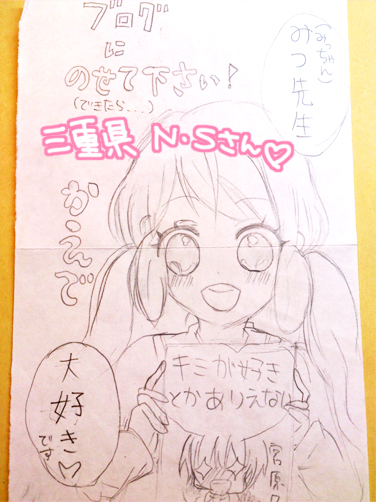 (みっちゃん)
みつ先生
ブログ
に
のせて下さい!
(できたら...)
三重県 N・Sさん♡
かえで
キミが好き
とかありえない
大好き♡
です